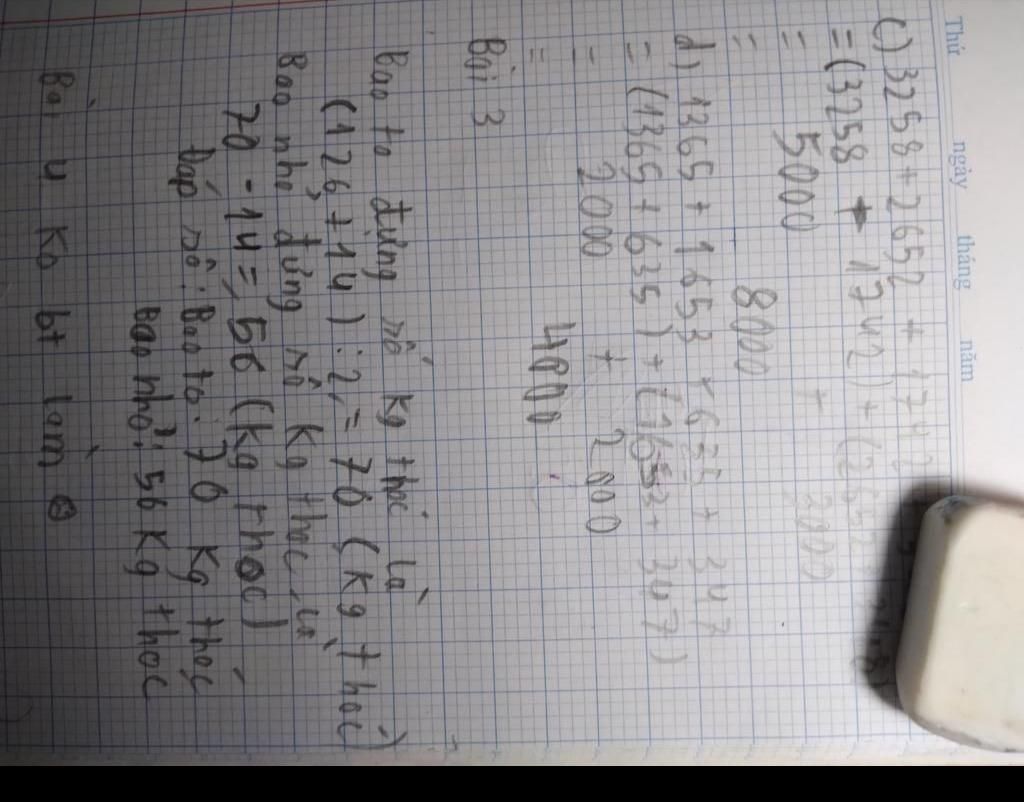 Thứ ngày tháng năm
c) 3258 + 2652 + 1742
= (3258 + 1742) + (
= 5000 + 3000
= 8000
d) 1365 + 1653 + 635 + 347
= (1365 + 635) + (1653 + 347)
= 2000 + 2000
= 4000
Bài 3
Bao to đựng số kg thóc là
(126 + 14) : 2 = 70 (kg thóc)
Bao nhỏ đựng số kg thóc là
70 - 14 = 56 (kg thóc)
Đáp số: Bao to: 70 kg thóc
Bao nhỏ: 56 kg thóc
Bài 4 Ko bt làm